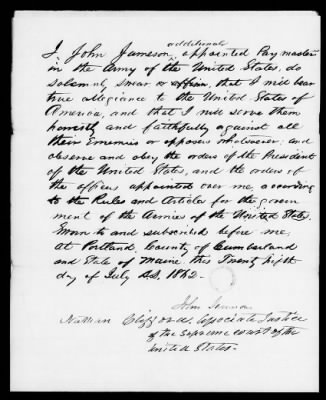 additional
I, John Jameson, appointed Paymaster
in the Army of the United States, do
solemnly swear or affirm, that I will bear
true allegiance to the United States of
America, and that I will serve them
honestly and faithfully against all
their Enemies or opposers whatsoever, and
observe and obey the orders of the President
of the United States, and the orders of
the officers appointed over me according
to the Rules and Articles for the govern
ment of the Armies of the United States.
Sworn to and subscribed before me,
at Portland, County of Cumberland
and State of Maine, this Twenty fifth
day of July A.D. 1862.
John Jameson
Nathan Clifford, Associate Justice
of the Supreme Court of the
United States.